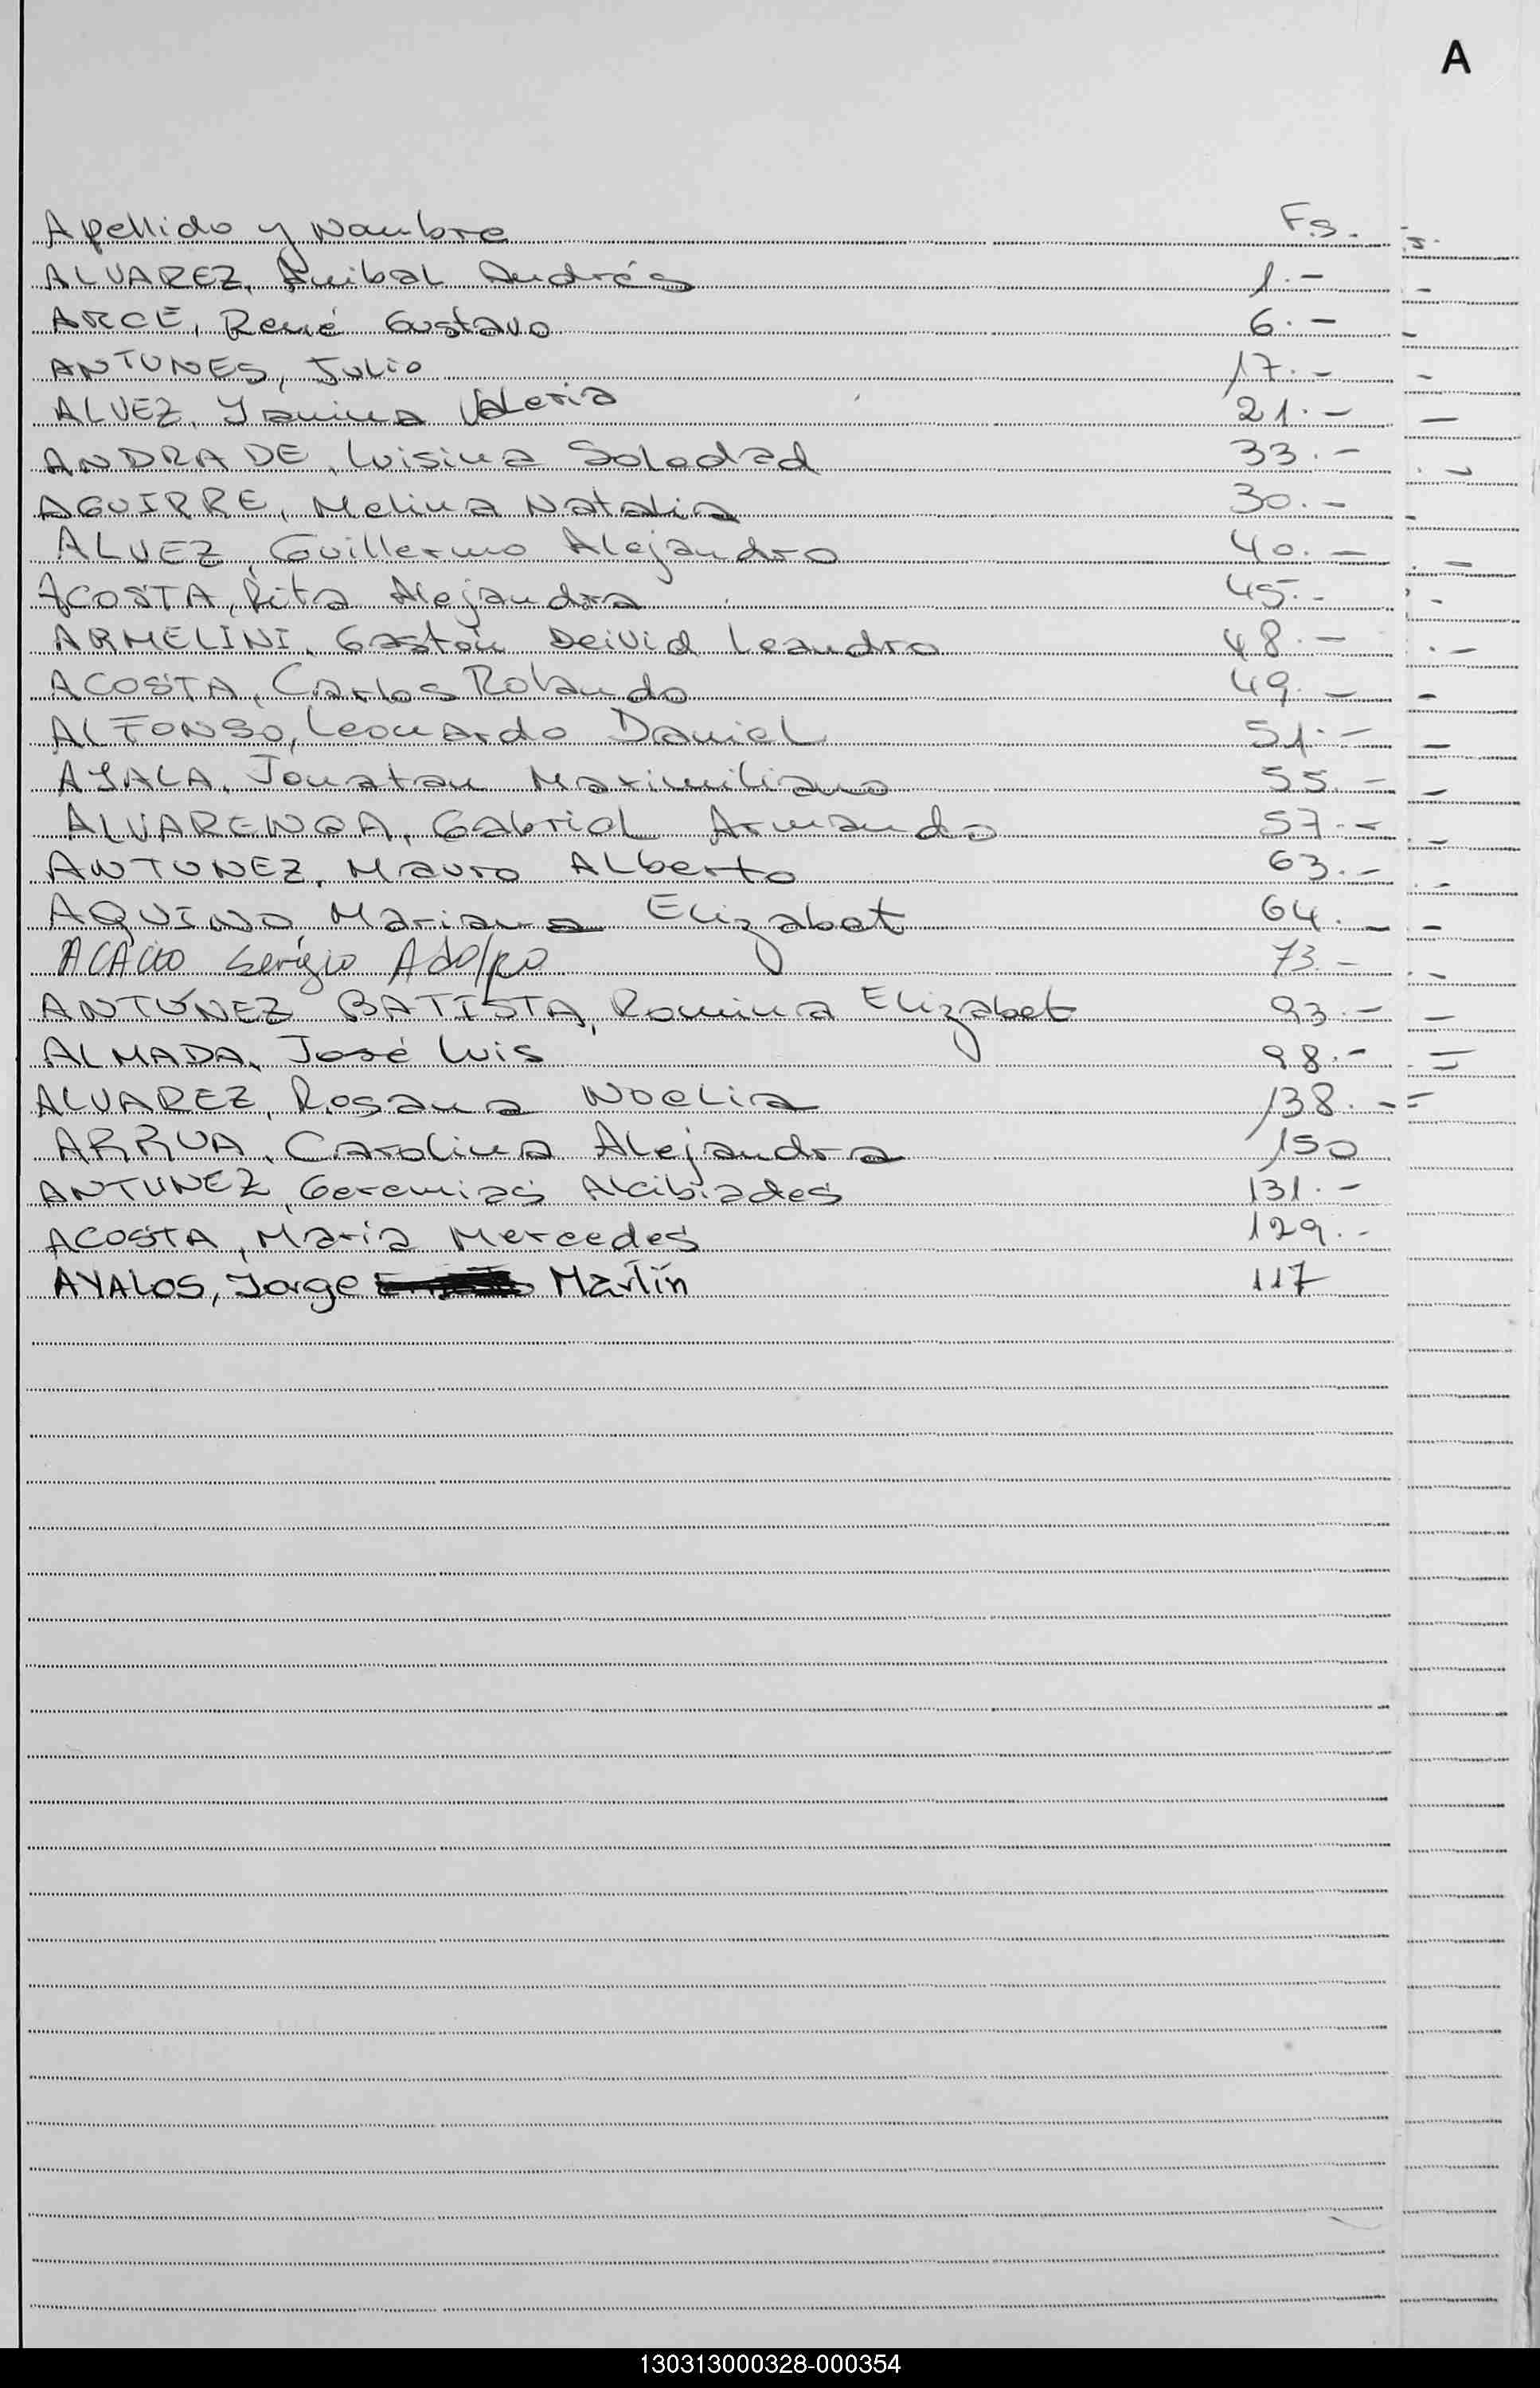 A
Apellido y Nombre Fs.
ALVAREZ, Anibal Andrés 1.-
ARCE, René Gustavo 6.-
ANTUNES, Julio 17.-
ALVEZ, Yanina Valeria 21.-
ANDRADE, Luisina Soledad 33.-
AGUIRRE, Melina Natalia 30.-
ALVEZ, Guillermo Alejandro 40.-
ACOSTA, Rita Alejandra 45.-
ARMELINI, Gastón Deivid Leandro 48.-
ACOSTA, Carlos Rolando 49.-
ALFONSO, Leonardo Daniel 51.-
AYALA, Jonatan Maximiliano 55.-
ALVARENGA, Gabriel Armando 57.-
ANTUNEZ, Mauro Alberto 63.-
AQUINO, Mariana Elizabet 64.-
Sergio Adolfo 73.-
ANTÚNEZ BATISTA, Romina Elizabet 93.-
ALMADA, José Luis 98.-
ALVAREZ, Rosana Noelia 138.-
ARRUA, Carolina Alejandra 150
ANTUNEZ, Geremias Alcibiades 131.-
ACOSTA, Maria Mercedes 129.-
AYALOS, Jorge Martín 117
130313000328-000354